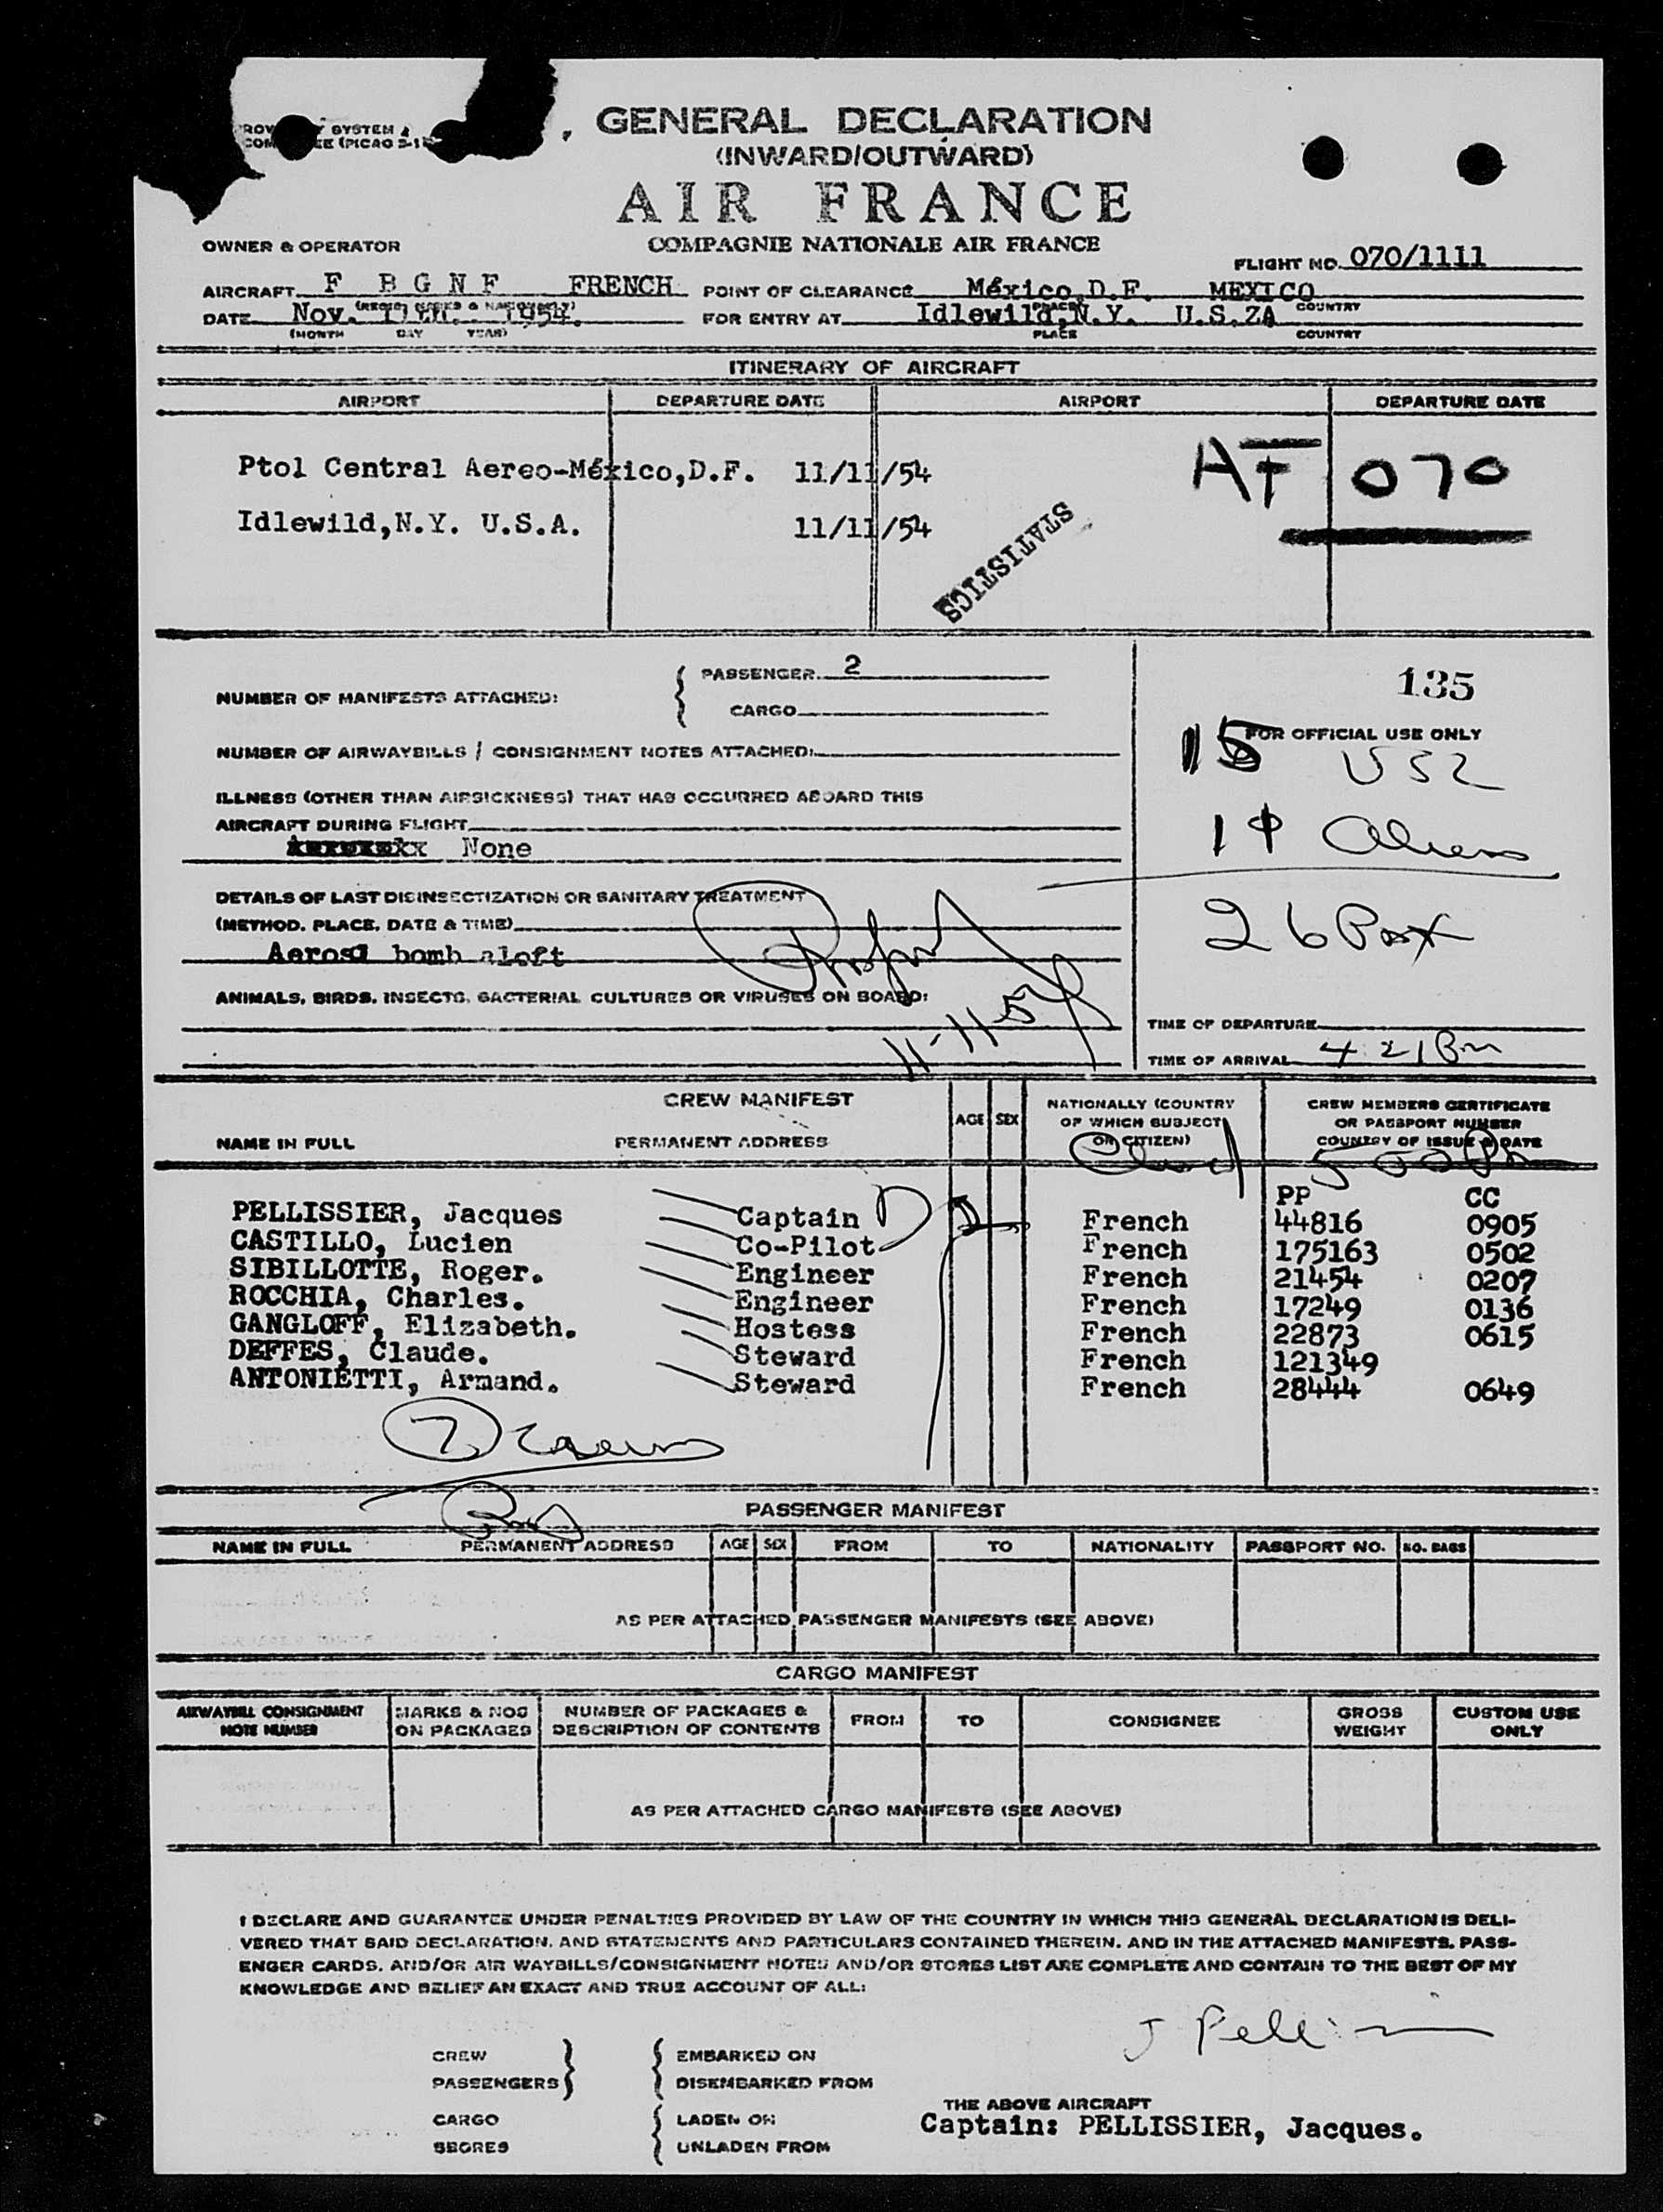 SYSTEM
(PICAO
GENERAL DECLARATION
(INWARD/OUTWARD)
AIR FRANCE
COMPAGNIE NATIONALE AIR FRANCE
OWNER & OPERATOR
FLIGHT NO. 070/1111
AIRCRAFT F B G N F FRENCH POINT OF CLEARANCE México,D.F. MEXICO
PLACE COUNTRY
DATE Nov. 1954. FOR ENTRY AT Idlewild,N.Y. U.S.ZA
(MONTH DAY YEAR) PLACE COUNTRY
ITINERARY OF AIRCRAFT
AIRPORT DEPARTURE DATE AIRPORT DEPARTURE DATE
Ptol Central Aereo-México,D.F. 11/11/54 070
Idlewild,N.Y. U.S.A. 11/11/54
STATISTICS
NUMBER OF MANIFESTS ATTACHED: PASSENGER 2
CARGO
135
NUMBER OF AIRWAYBILLS / CONSIGNMENT NOTES ATTACHED:
FOR OFFICIAL USE ONLY
15
ILLNESS (OTHER THAN AIRSICKNESS) THAT HAS OCCURRED ABOARD THIS
AIRCRAFT DURING FLIGHT
None
Aliens
DETAILS OF LAST DISINSECTIZATION OR SANITARY TREATMENT
(METHOD, PLACE, DATE & TIME)
26 Pax
Aerosl bomb aloft
ANIMALS, BIRDS, INSECTS, BACTERIAL CULTURES OR VIRUSES ON BOARD:
11-11-54
TIME OF DEPARTURE
TIME OF ARRIVAL 4:21 Pm
CREW MANIFEST
NAME IN FULL PERMANENT ADDRESS AGE SEX NATIONALLY (COUNTRY OF WHICH SUBJECT OR CITIZEN) CREW MEMBERS CERTIFICATE OR PASSPORT NUMBER COUNTRY OF ISSUE & DATE
PP CC
PELLISSIER, Jacques Captain French 44816 0905
CASTILLO, Lucien Co-Pilot French 175163 0502
SIBILLOTTE, Roger. Engineer French 21454 0207
ROCCHIA, Charles. Engineer French 17249 0136
GANGLOFF, Elizabeth. Hostess French 22873 0615
DEFFES, Claude. Steward French 121349
ANTONIETTI, Armand. Steward French 28444 0649
7
PASSENGER MANIFEST
NAME IN FULL PERMANENT ADDRESS AGE SEX FROM TO NATIONALITY PASSPORT NO. NO. BAGS
AS PER ATTACHED PASSENGER MANIFESTS (SEE ABOVE)
CARGO MANIFEST
AIRWAYBILL CONSIGNMENT NOTE NUMBER MARKS & NOS ON PACKAGES NUMBER OF PACKAGES & DESCRIPTION OF CONTENTS FROM TO CONSIGNEE GROSS WEIGHT CUSTOM USE ONLY
AS PER ATTACHED CARGO MANIFESTS (SEE ABOVE)
I DECLARE AND GUARANTEE UNDER PENALTIES PROVIDED BY LAW OF THE COUNTRY IN WHICH THIS GENERAL DECLARATION IS DELI-
VERED THAT SAID DECLARATION, AND STATEMENTS AND PARTICULARS CONTAINED THEREIN, AND IN THE ATTACHED MANIFESTS, PASS-
ENGER CARDS, AND/OR AIR WAYBILLS/CONSIGNMENT NOTES AND/OR STORES LIST ARE COMPLETE AND CONTAIN TO THE BEST OF MY
KNOWLEDGE AND BELIEF AN EXACT AND TRUE ACCOUNT OF ALL:
CREW EMBARKED ON
PASSENGERS DISEMBARKED FROM
THE ABOVE AIRCRAFT
CARGO LADEN ON
Captain: PELLISSIER, Jacques.
SBORES UNLADEN FROM